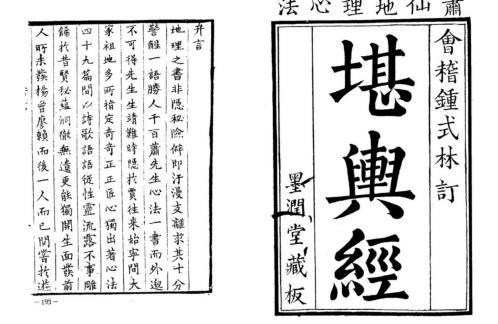 蕭仙地理心法
會稽鍾式林訂
堪輿經
墨潤堂藏板
弁言
地理之書非隱秘險僻即汗漫支離求其十分
警醒一語勝人千百蕭先生心法一書而外邈
不可得先生生諸難時隱於賈往來始寧間大
家祖地多所指定奇奇正正匠心獨出著心法
四十九篇間以詩歌語語從性靈流露不事雕
餙於昔賢秘蘊洞徹無遺更能獨開生面發前
人所未發楊曾廖賴而後一人而已間嘗於遊
-193-